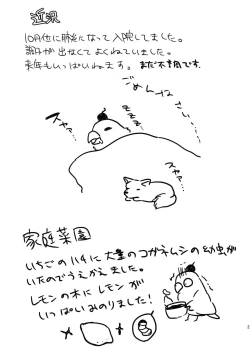 近況
10月位に肺炎になって入院してました。
調子が出なくてよくねていました。
来年もいっぱいねます。まだ不調です。
ごめんなさい…
スヤァ…
zzzz…
スヤ…
家庭菜園
いちごのハチに大量のコガネムシの幼虫が
いたのでうえかえました。
レモンの木にレモンが
いっぱいみのりました！